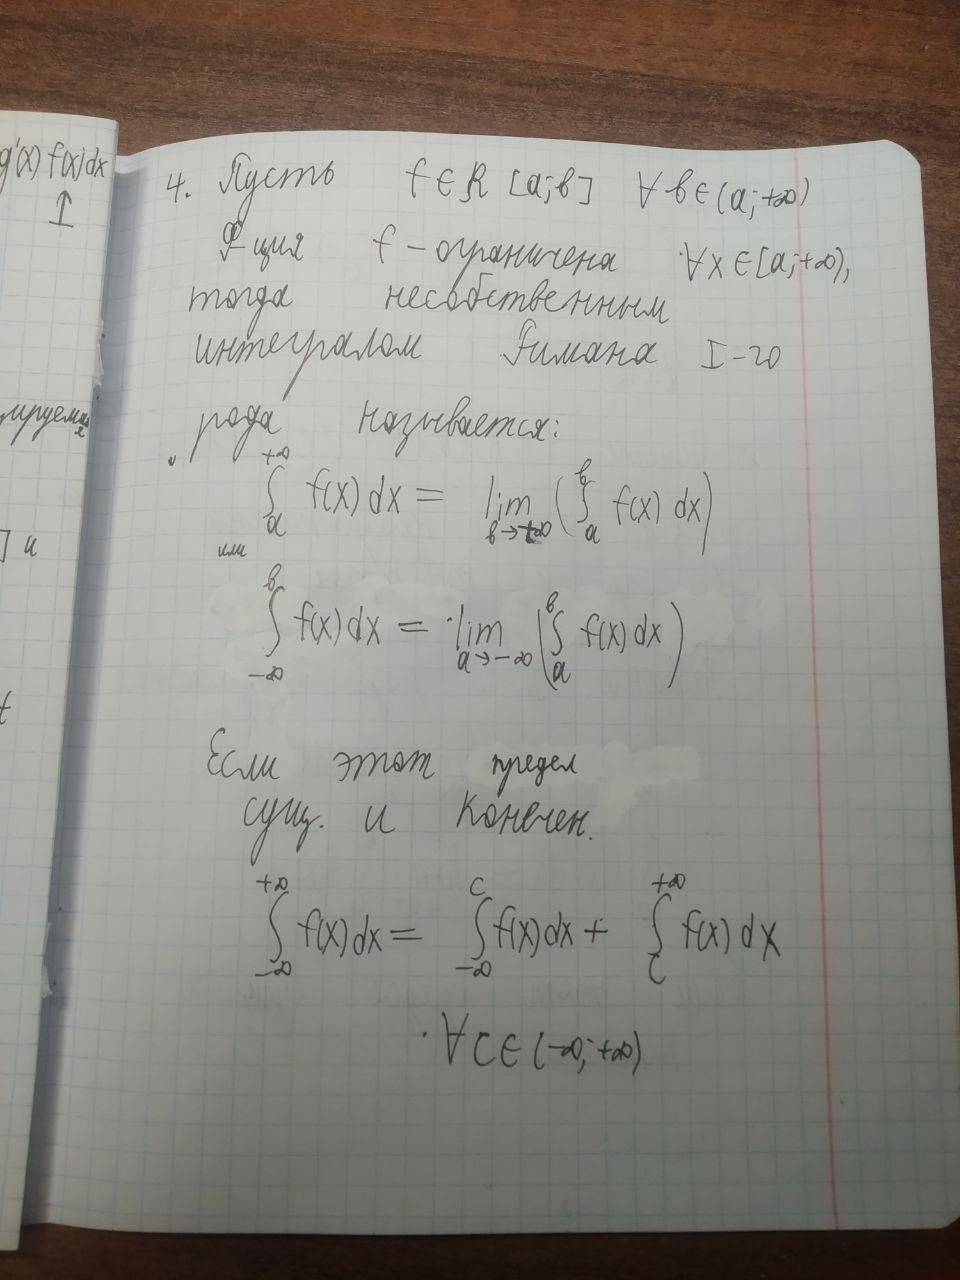 g'(x) f(x) dx
I
] и
t
4. Пусть f ∈ R [a; b] ∀ b ∈ (a; +∞)
Ф-ция f - ограничена ∀ x ∈ [a; +∞),
тогда несобственным
интегралом Римана I-го
рода называется:
∫ₐ^{+∞} f(x) dx = lim_{b→+∞} (∫ₐ^b f(x) dx)
или
∫_{-∞}^b f(x) dx = lim_{a→-∞} (∫ₐ^b f(x) dx)
Если этот предел
сущ. и конечен.
∫_{-∞}^{+∞} f(x) dx = ∫_{-∞}^c f(x) dx + ∫_c^{+∞} f(x) dx
∀ c ∈ (-∞; +∞)